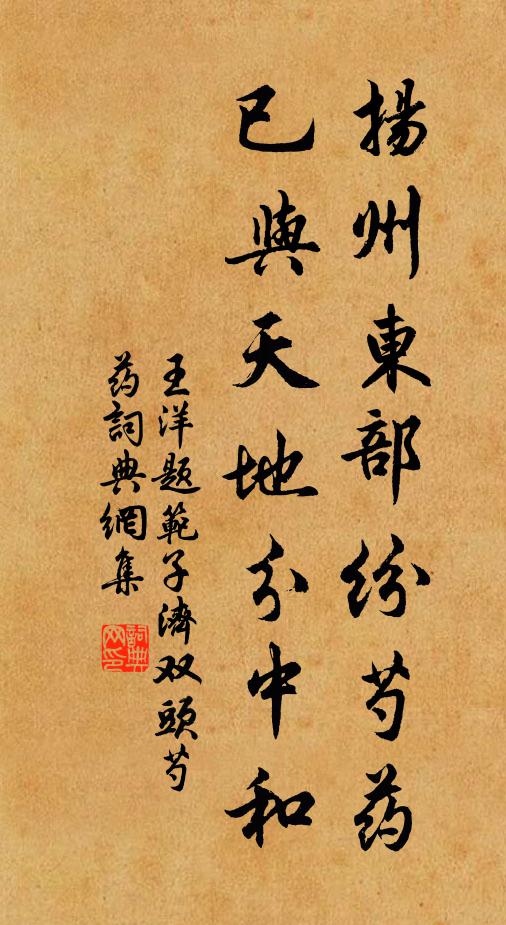 揚州東部紛芍药
已與天地分中和
王洋題範子濟双頭芍
药詞典網集
詞典网印